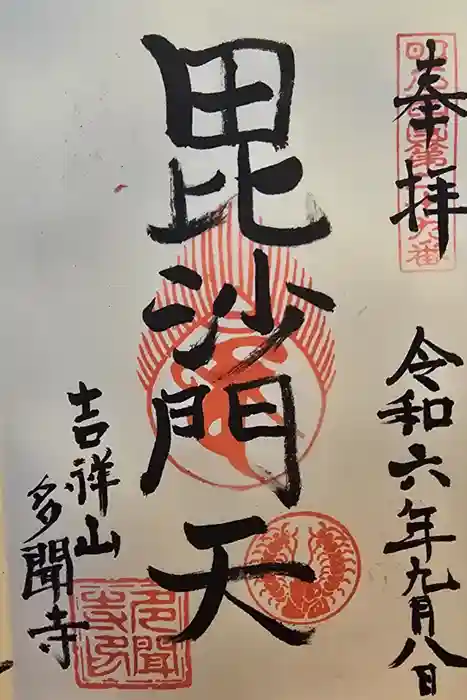 奉拝
令和六年九月八日
毘沙門天
吉祥山
多聞寺
多聞寺印